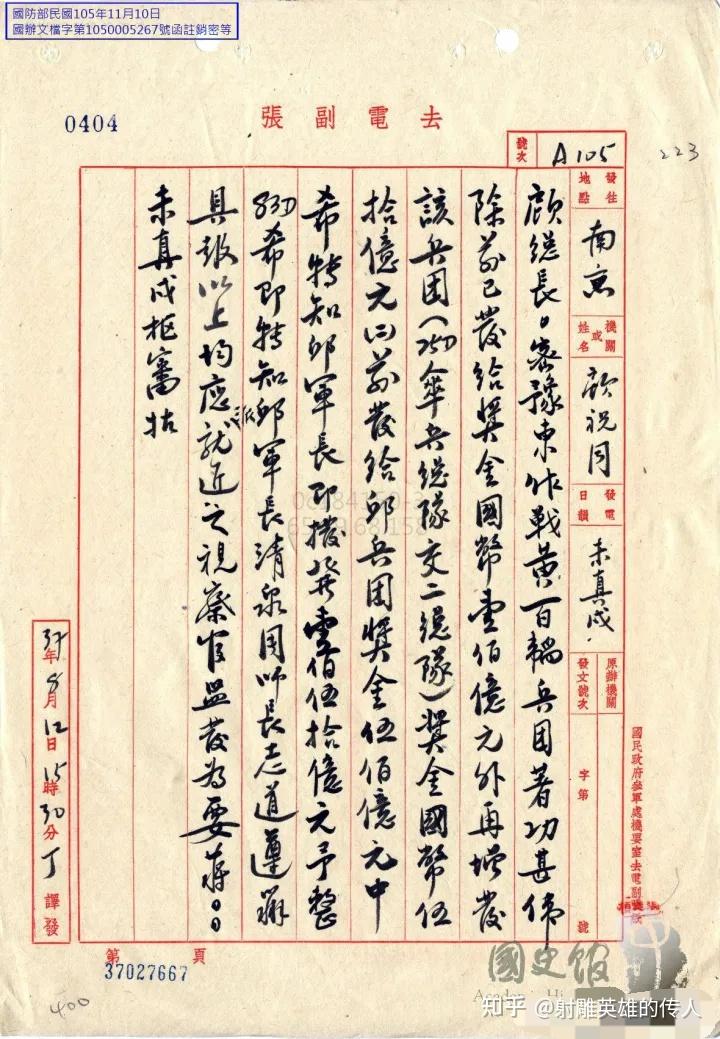 國防部民國105年11月10日
國辦文檔字第1050005267號函註銷密等
0404
去電副張
號次 A105
223
發往地點 南京
機關或姓名 顧祝同
發電日韻 未真戌
原辦機關
發文號次 字第 號
國民政府參軍處機要室去電副張紙
顧總長。密豫東作戰黃百韜兵团著功甚偉
除前已發給獎金國幣壹佰億元外再增發
該兵团(25D傘兵總隊交二總隊)獎金國幣伍
拾億元前發給邱兵团獎金伍佰億元中
希轉知邱軍長即撥發壹佰伍拾億元予整
83D希即轉知邱軍長清泉周師長志道遵辦
具報以上均應派就近之視察官監發為要蔣。。
未真戌枢審祜
37年8月12日15時30分丁譯發
第 頁
37027667
400
國史館
知乎 @射雕英雄的传人